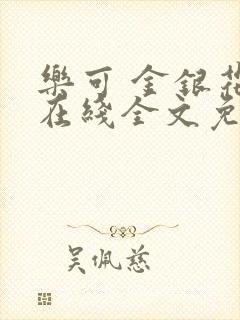 樂可 金銀花
在綫全文免
吳佩慈